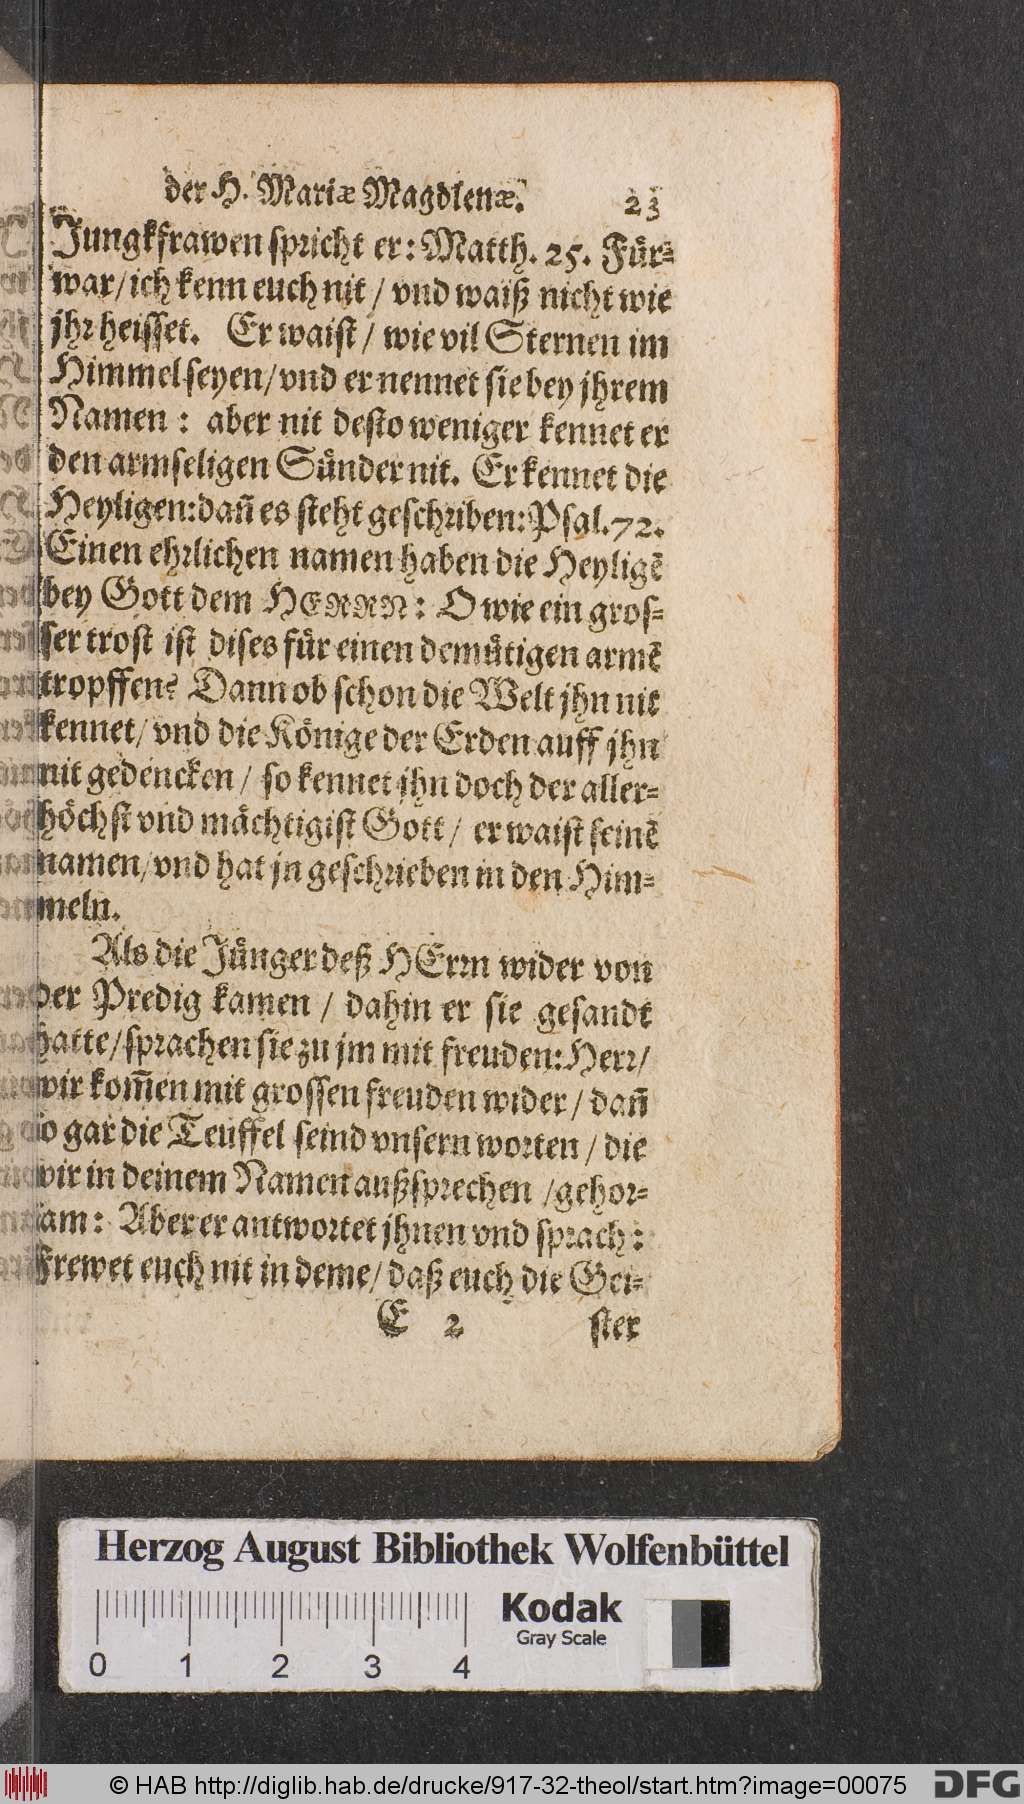 der H. Mariæ Magdlenæ. 23
Jungkfrawen spricht er: Matth. 25. Fuͤr⸗
war/ ich kenn euch nit / vnd waiß nicht wie
jhr heisset. Er waist / wie vil Sternen im
Himmel seyen/ vnd er nennet sie bey jhrem
Namen : aber nit desto weniger kennet er
den armseligen Suͤnder nit. Er kennet die
Heyligen: dañ es steht geschriben: Psal. 72.
Einen ehrlichen namen haben die Heyligẽ
bey Gott dem HERRN : O wie ein gros⸗
ser trost ist dises fuͤr einen demuͤtigen armẽ
tropffen? Dann ob schon die Welt jhn nit
kennet/ vnd die Koͤnige der Erden auff jhn
nit gedencken / so kennet jhn doch der aller⸗
hoͤchst vnd maͤchtigist Gott / er waist seinẽ
namen/ vnd hat jn geschrieben in den Him⸗
meln.
Als die Juͤnger deß HErrn wider von
der Predig kamen / dahin er sie gesandt
hatte/ sprachen sie zu jm mit freuden: Herr/
wir kom̃en mit grossen freuden wider / dañ
so gar die Teuffel seind vnsern worten / die
wir in deinem Namen außsprechen / gehor⸗
sam : Aber er antwortet jhnen vnd sprach :
Frewet euch nit in deme/ daß euch die Gei⸗
E 2 ster
Herzog August Bibliothek Wolfenbüttel
Kodak
Gray Scale
0 1 2 3 4
© HAB http://diglib.hab.de/drucke/917-32-theol/start.htm?image=00075 DFG